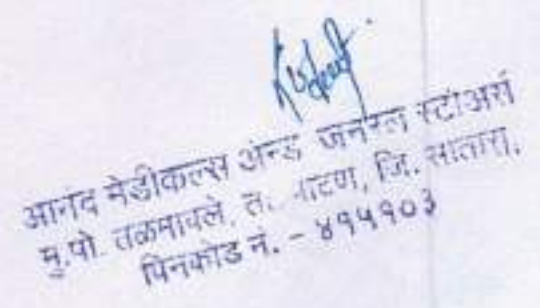 आनंद मेडीकल्स अॅन्ड जनरल स्टोअर्स
मु.पो. तळमावले, ता. पाटण, जि. सातारा.
पिनकोड नं. - ४१५१०३